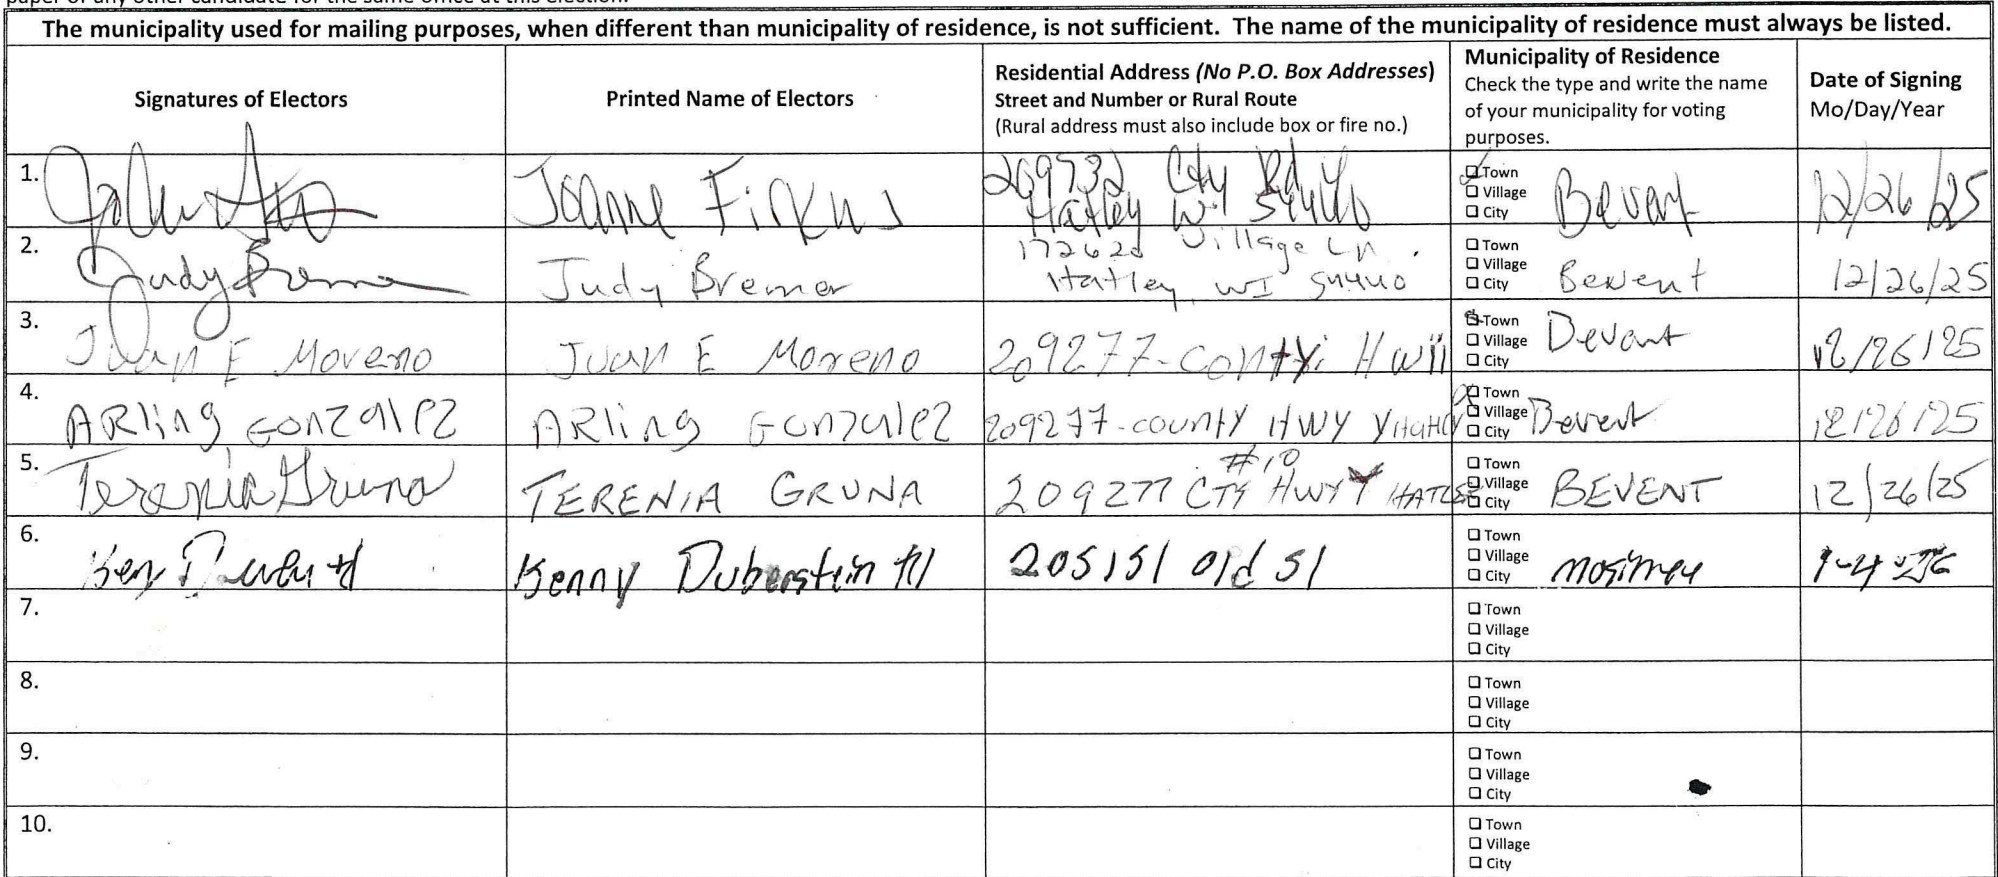 paper of any other candidate for the same office at this election.
The municipality used for mailing purposes, when different than municipality of residence, is not sufficient. The name of the municipality of residence must always be listed.
Signatures of Electors
Printed Name of Electors
Residential Address (No P.O. Box Addresses)
Street and Number or Rural Route
(Rural address must also include box or fire no.)
Municipality of Residence
Check the type and write the name
of your municipality for voting
purposes.
Date of Signing
Mo/Day/Year
1.
Joanne Firkus
209732 Cty Rd Y
Hatley WI 54440
Town
Village
City
12/26/25
2.
Judy Bremer
Judy Bremer
172620 Village Ln.
Hatley, WI 54440
Town
Village
City
Bevent
12/26/25
3.
Juan E Moreno
Juan E Moreno
209277-conty Hwii
Town
Village
City
Devant
12/26/25
4.
ARling Gonzalez
ARling Gonzalez
209277-county HWY Y
Town
Village
City
Bevent
12/26/25
5.
Terenia Gruna
TERENIA GRUNA
#10
209277 CTY HWY Y HATLEY
Town
Village
City
BEVENT
12/26/25
6.
Kenny Duberstein III
205151 old 51
Town
Village
City
7.
Town
Village
City
8.
Town
Village
City
9.
Town
Village
City
10.
Town
Village
City